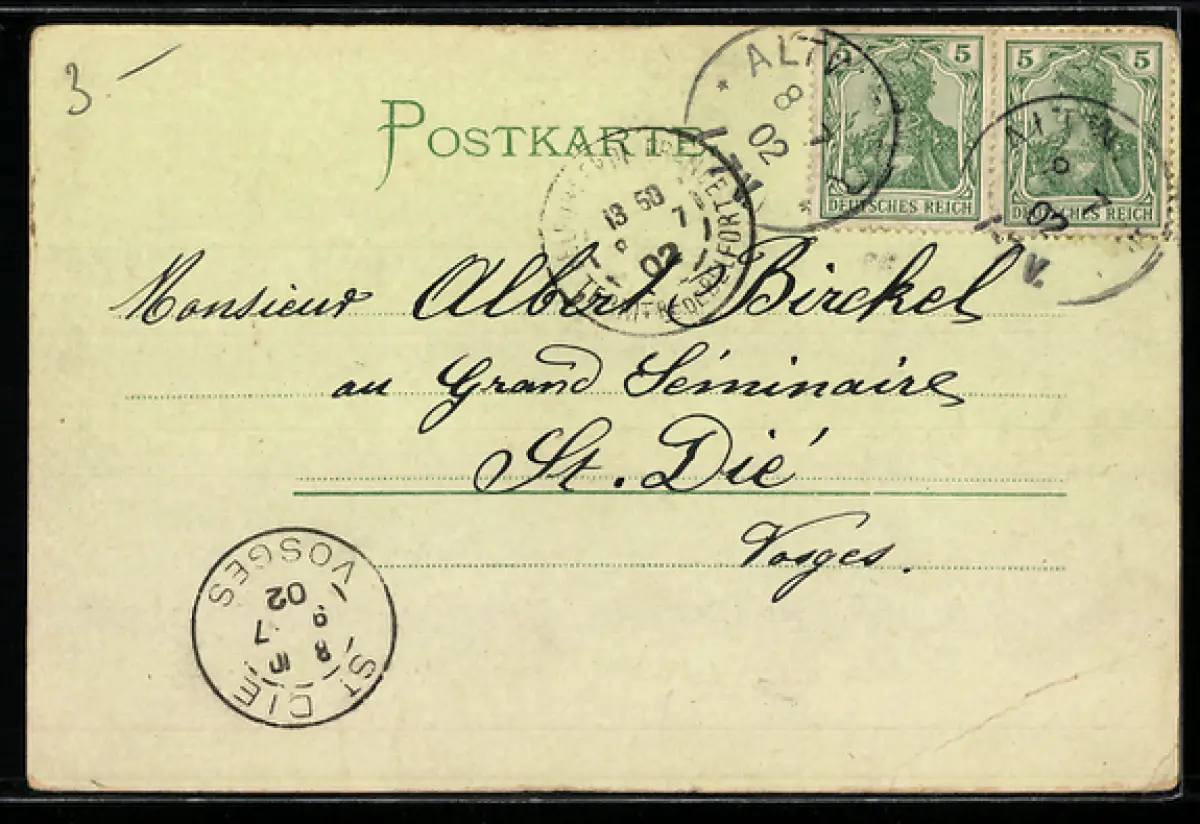 3 -
POSTKARTE
5 5
DEUTSCHES REICH
5 5
DEUTSCHES REICH
8 7
02
02
13 50
7
02
Monsieur Albert Birckel
au Grand Séminaire
St. Dié
Vosges.
ST DIE
VOSGES
02